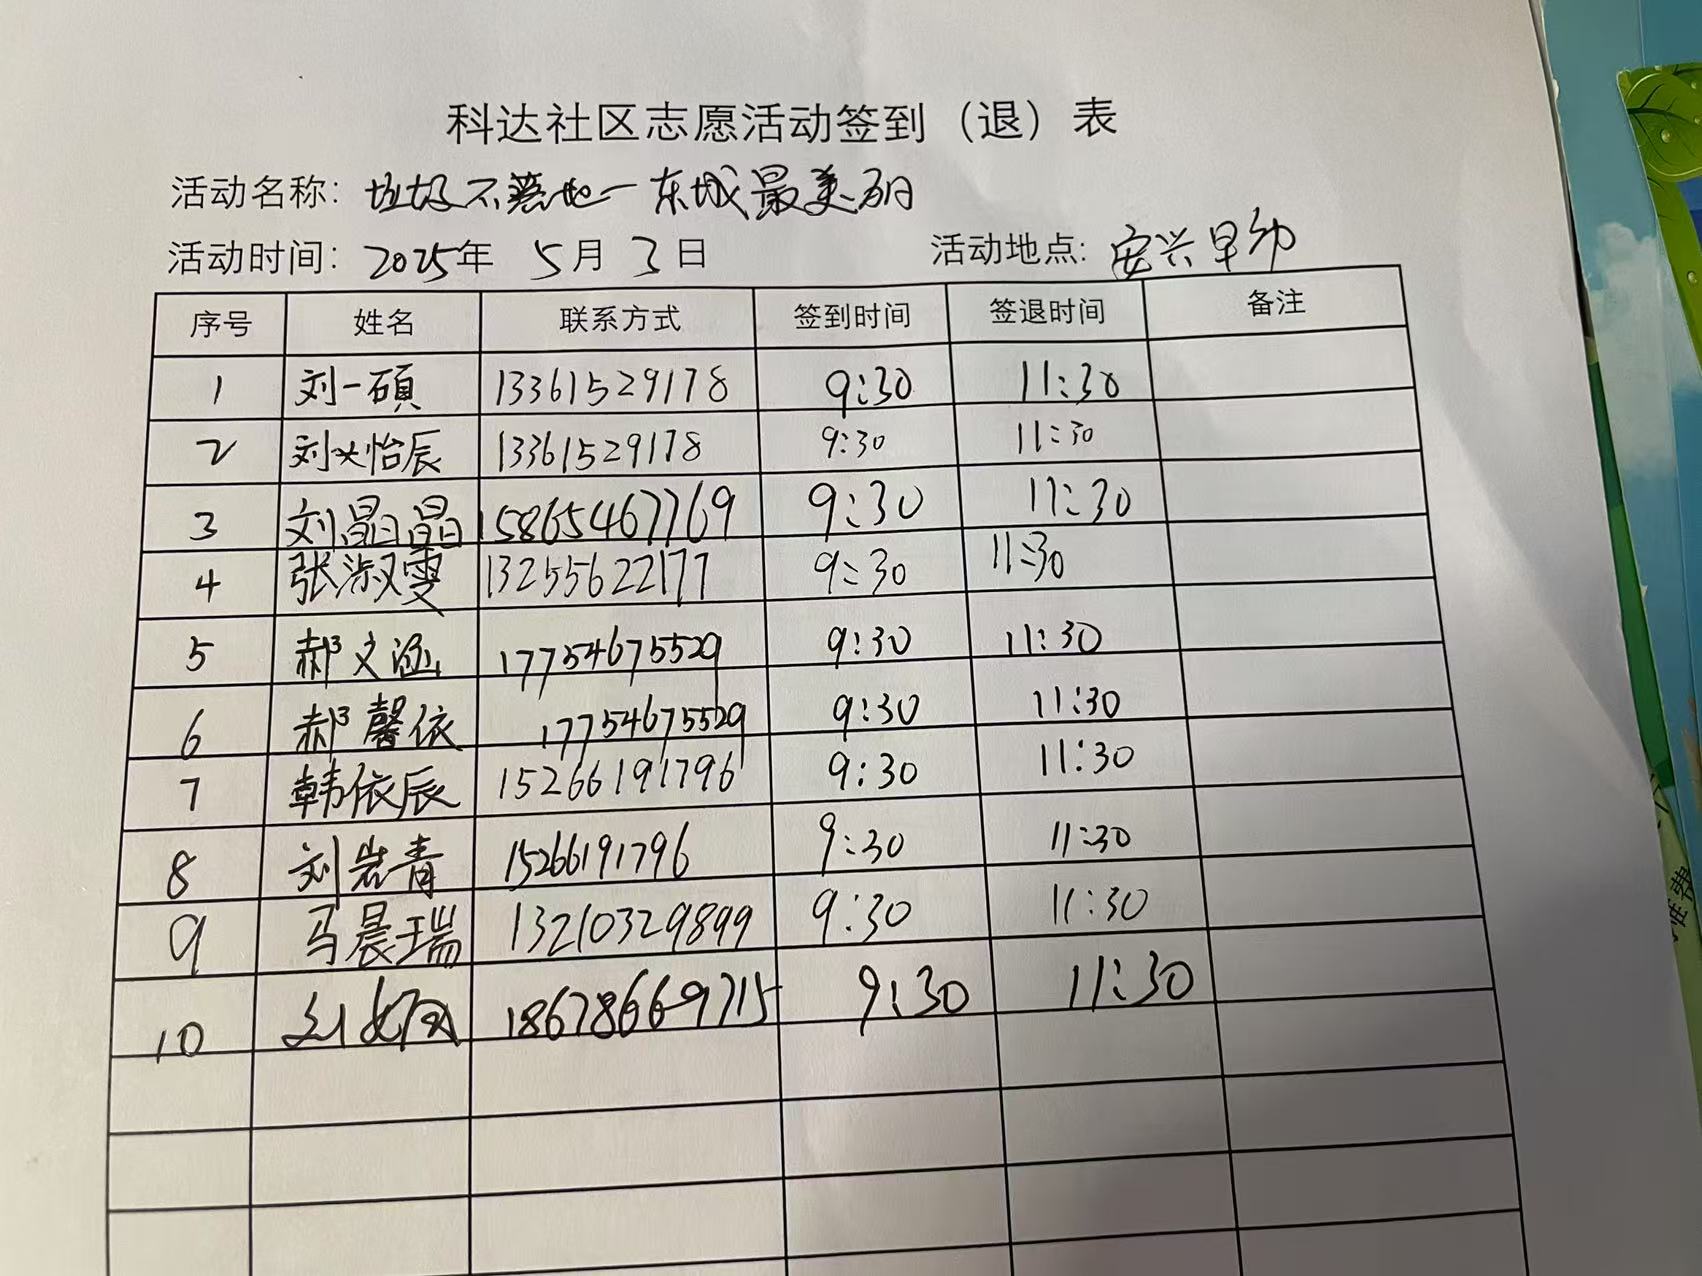 科达社区志愿活动签到（退）表
活动名称：垃圾不落地一东城最美丽
活动时间：2025年 5月 3日 活动地点：安兴早幼
序号 姓名 联系方式 签到时间 签退时间 备注
1 刘一硕 13361529178 9:30 11:30
2 刘怡辰 13361529178 9:30 11:30
3 刘晶晶 15865467769 9:30 11:30
4 张淑雯 13255622177 9:30 11:30
5 郝文涵 17754675529 9:30 11:30
6 郝馨依 17754675529 9:30 11:30
7 韩依辰 15266191796 9:30 11:30
8 刘岩青 15266191796 9:30 11:30
9 马晨瑞 13210329899 9:30 11:30
10 18678669715 9:30 11:30